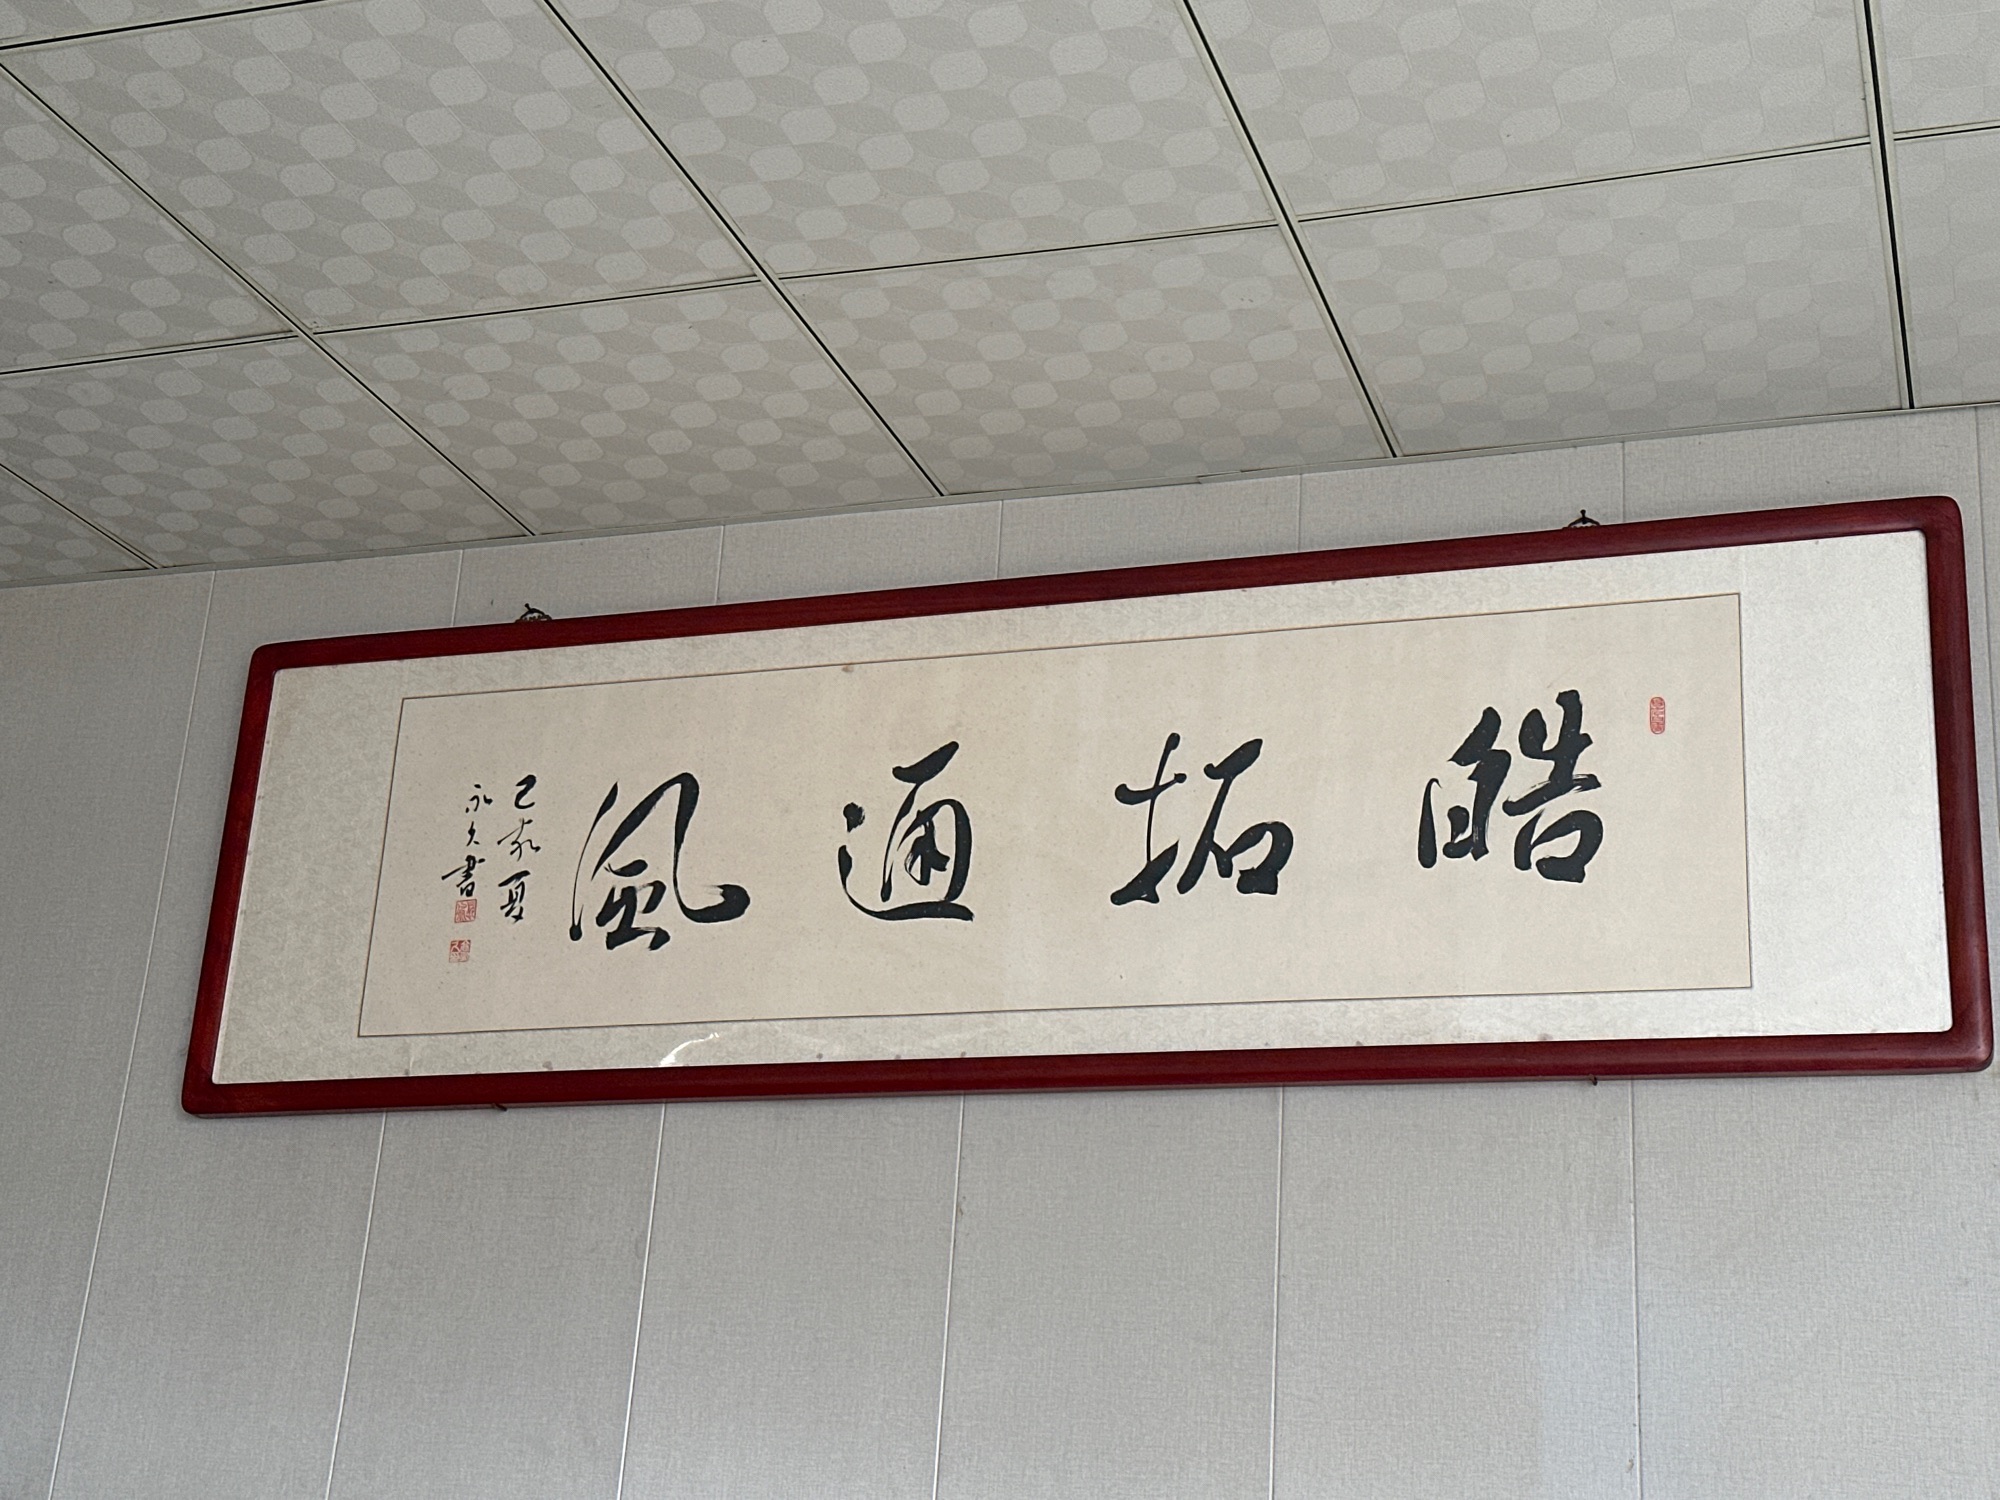 皓拓通風
己亥夏
永久書